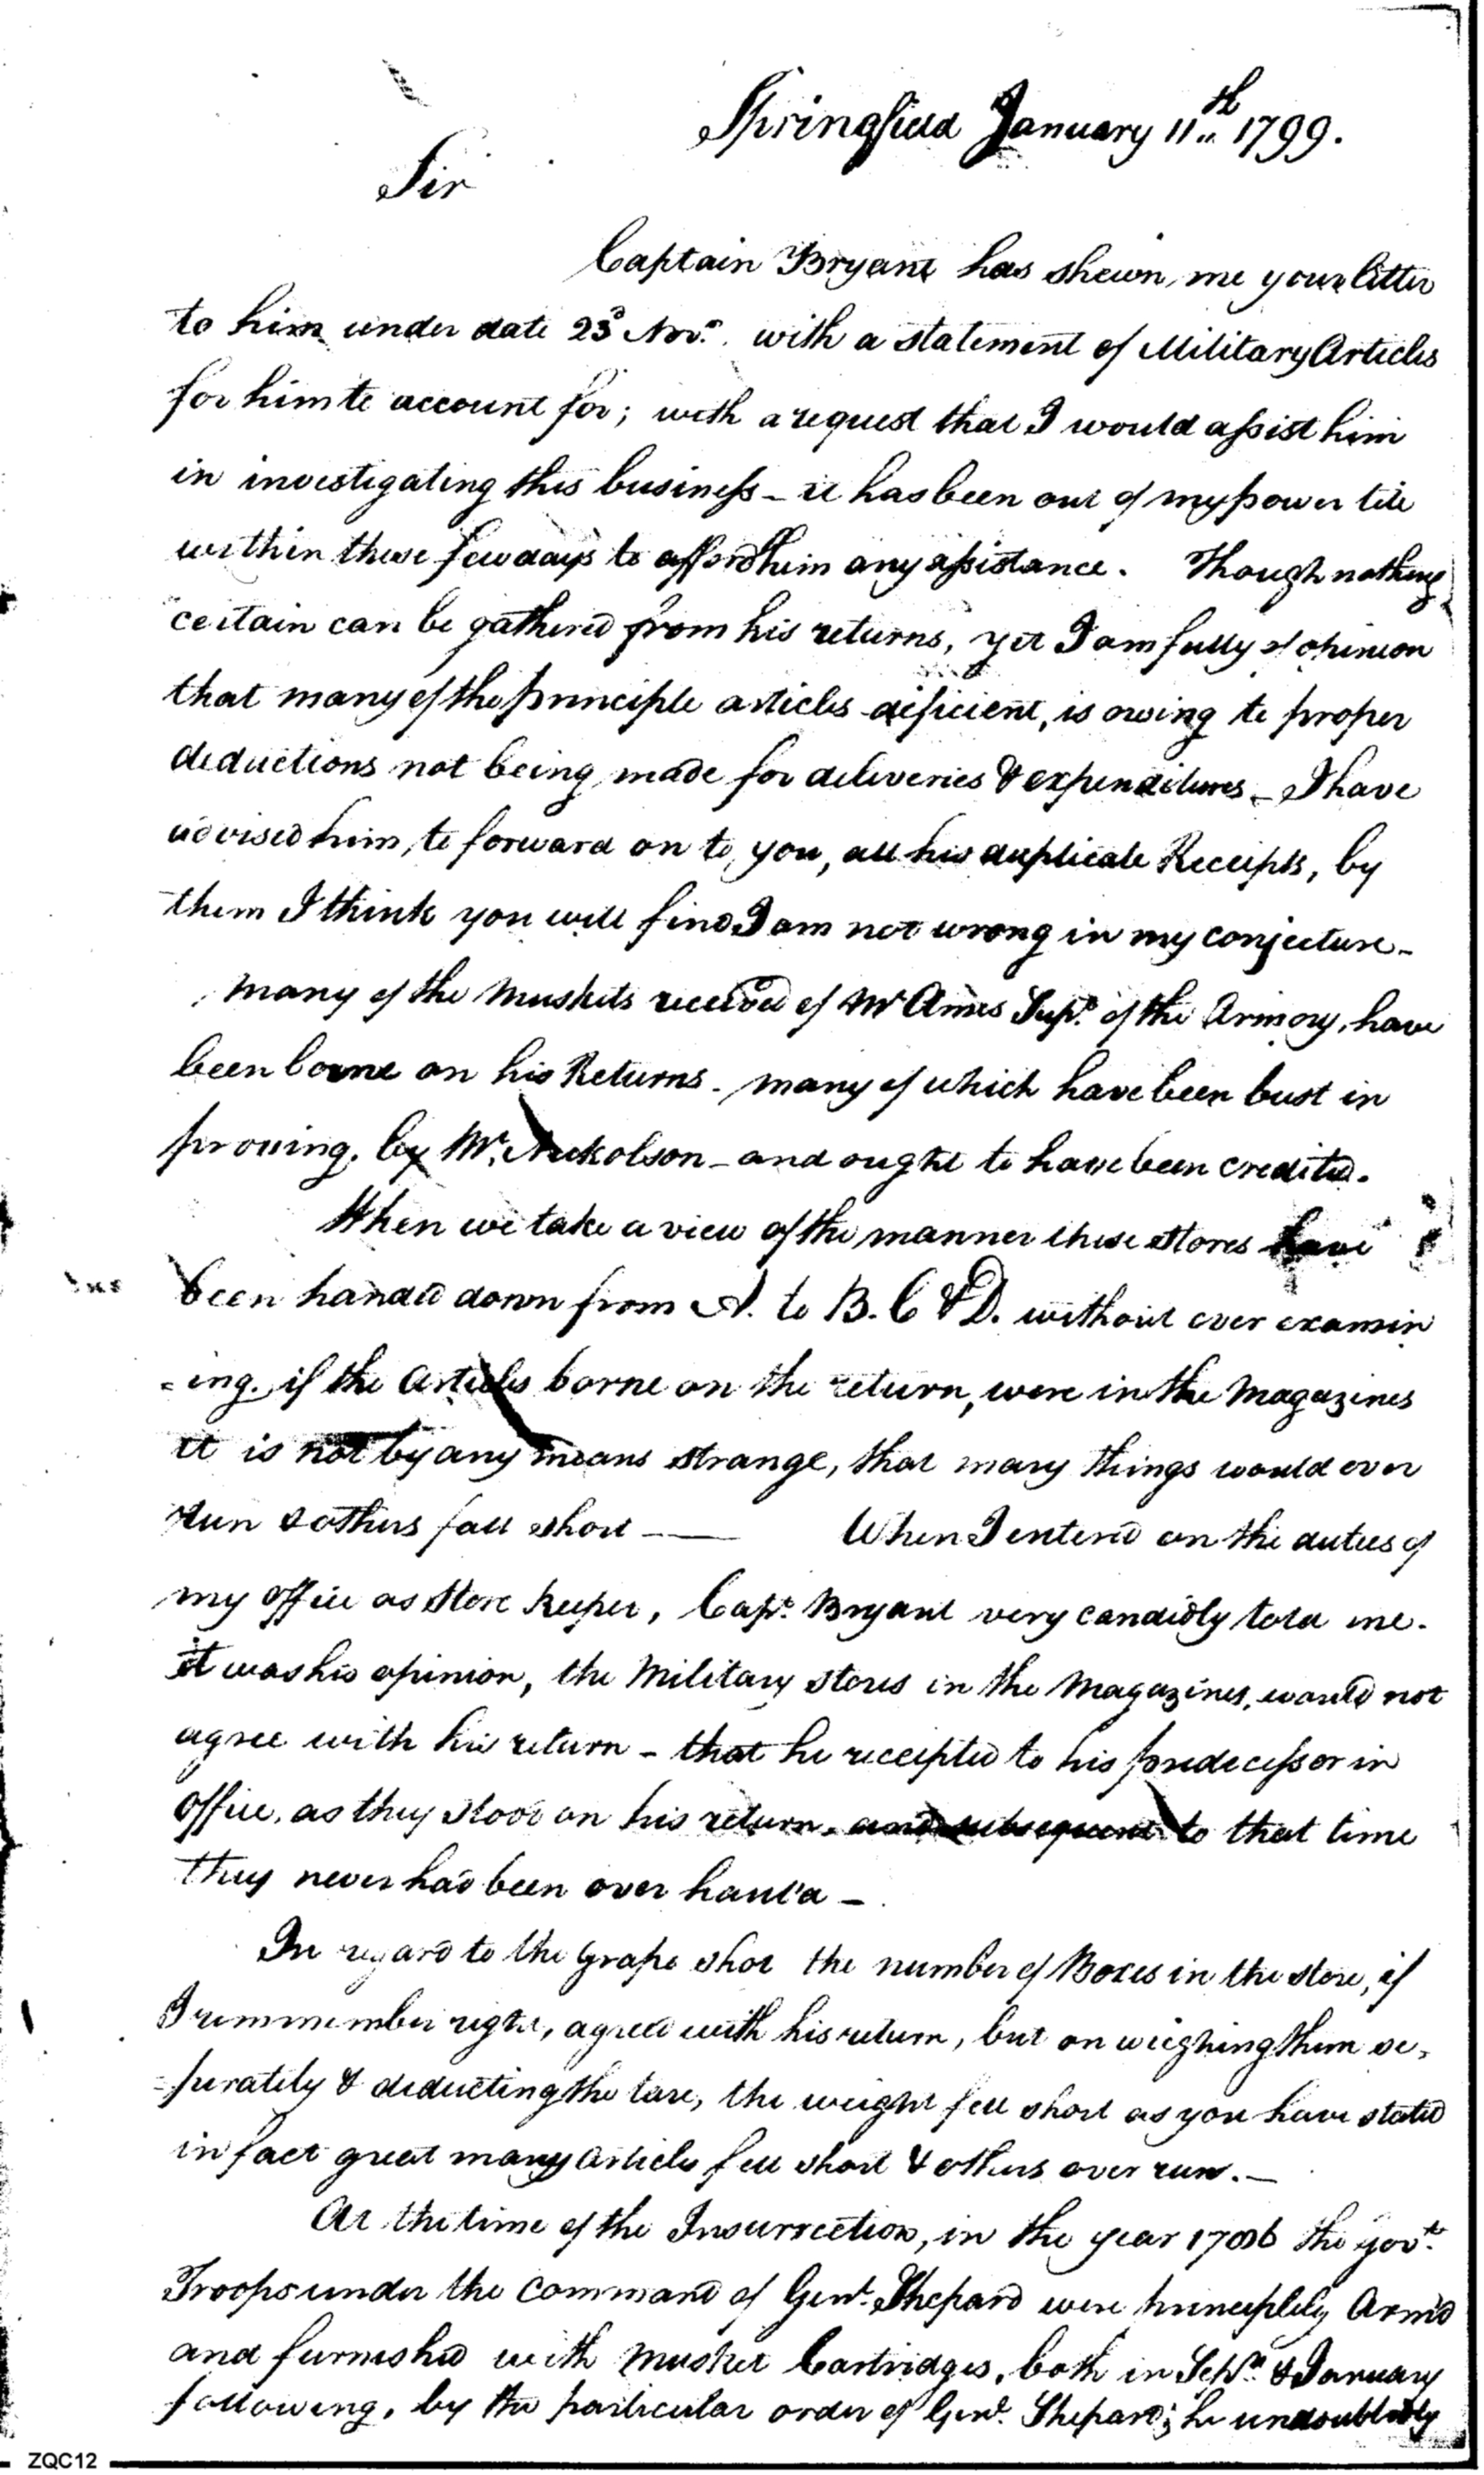 Springfield January 11th 1799.
Sir
Captain Bryant has shewn me your letter
to him under date 23d Novr. with a statement of Military Articles
for him to account for; with a request that I would assist him
in investigating this business - it has been out of my power till
within these few days to afford him any assistance. Though nothing
certain can be gathered from his returns, yet I am fully of opinion
that many of the principle articles deficient, is owing to proper
deductions not being made for deliveries & expenditures - I have
advised him, to forward on to you, all his duplicate Receipts, by
them I think you will find I am not wrong in my conjecture -
many of the Muskets received of Mr Ames Supt. of the Armory, have
been borne on his Returns - many of which have been bust in
proving, by Mr. Nickolson - and ought to have been credited.
When we take a view of the manner these stores have
been handed down from A. to B. C & D. without ever examin
=ing, if the Articles borne on the return, were in the Magazines
it is not by any means strange, that many things would over
run & others fall short —— When I enterd on the duties of
my office as Store keeper, Capt. Bryant very candidly told me.
it was his opinion, the Military stores in the Magazines, would not
agree with his return - that he receipted to his predecessor in
office, as they stood on his return, and subsequent to that time
they never had been over haul'd -
In regard to the Grape shot the number of Boxes in the store, if
I remmember right, agreed with his return, but on weighing them se=
=perately & deducting the tare, the weight fell short as you have stated
in fact great many articles fell short & others over run. -
At the time of the Insurrection, in the year 1786 the Govt.
Troops under the command of Genl. Shepard were principlely Arm'd
and furnished with Musket Cartridges, both in Sepr. & January
following, by the particular order of Genl. Shepard; he undoubtedly
ZQC12